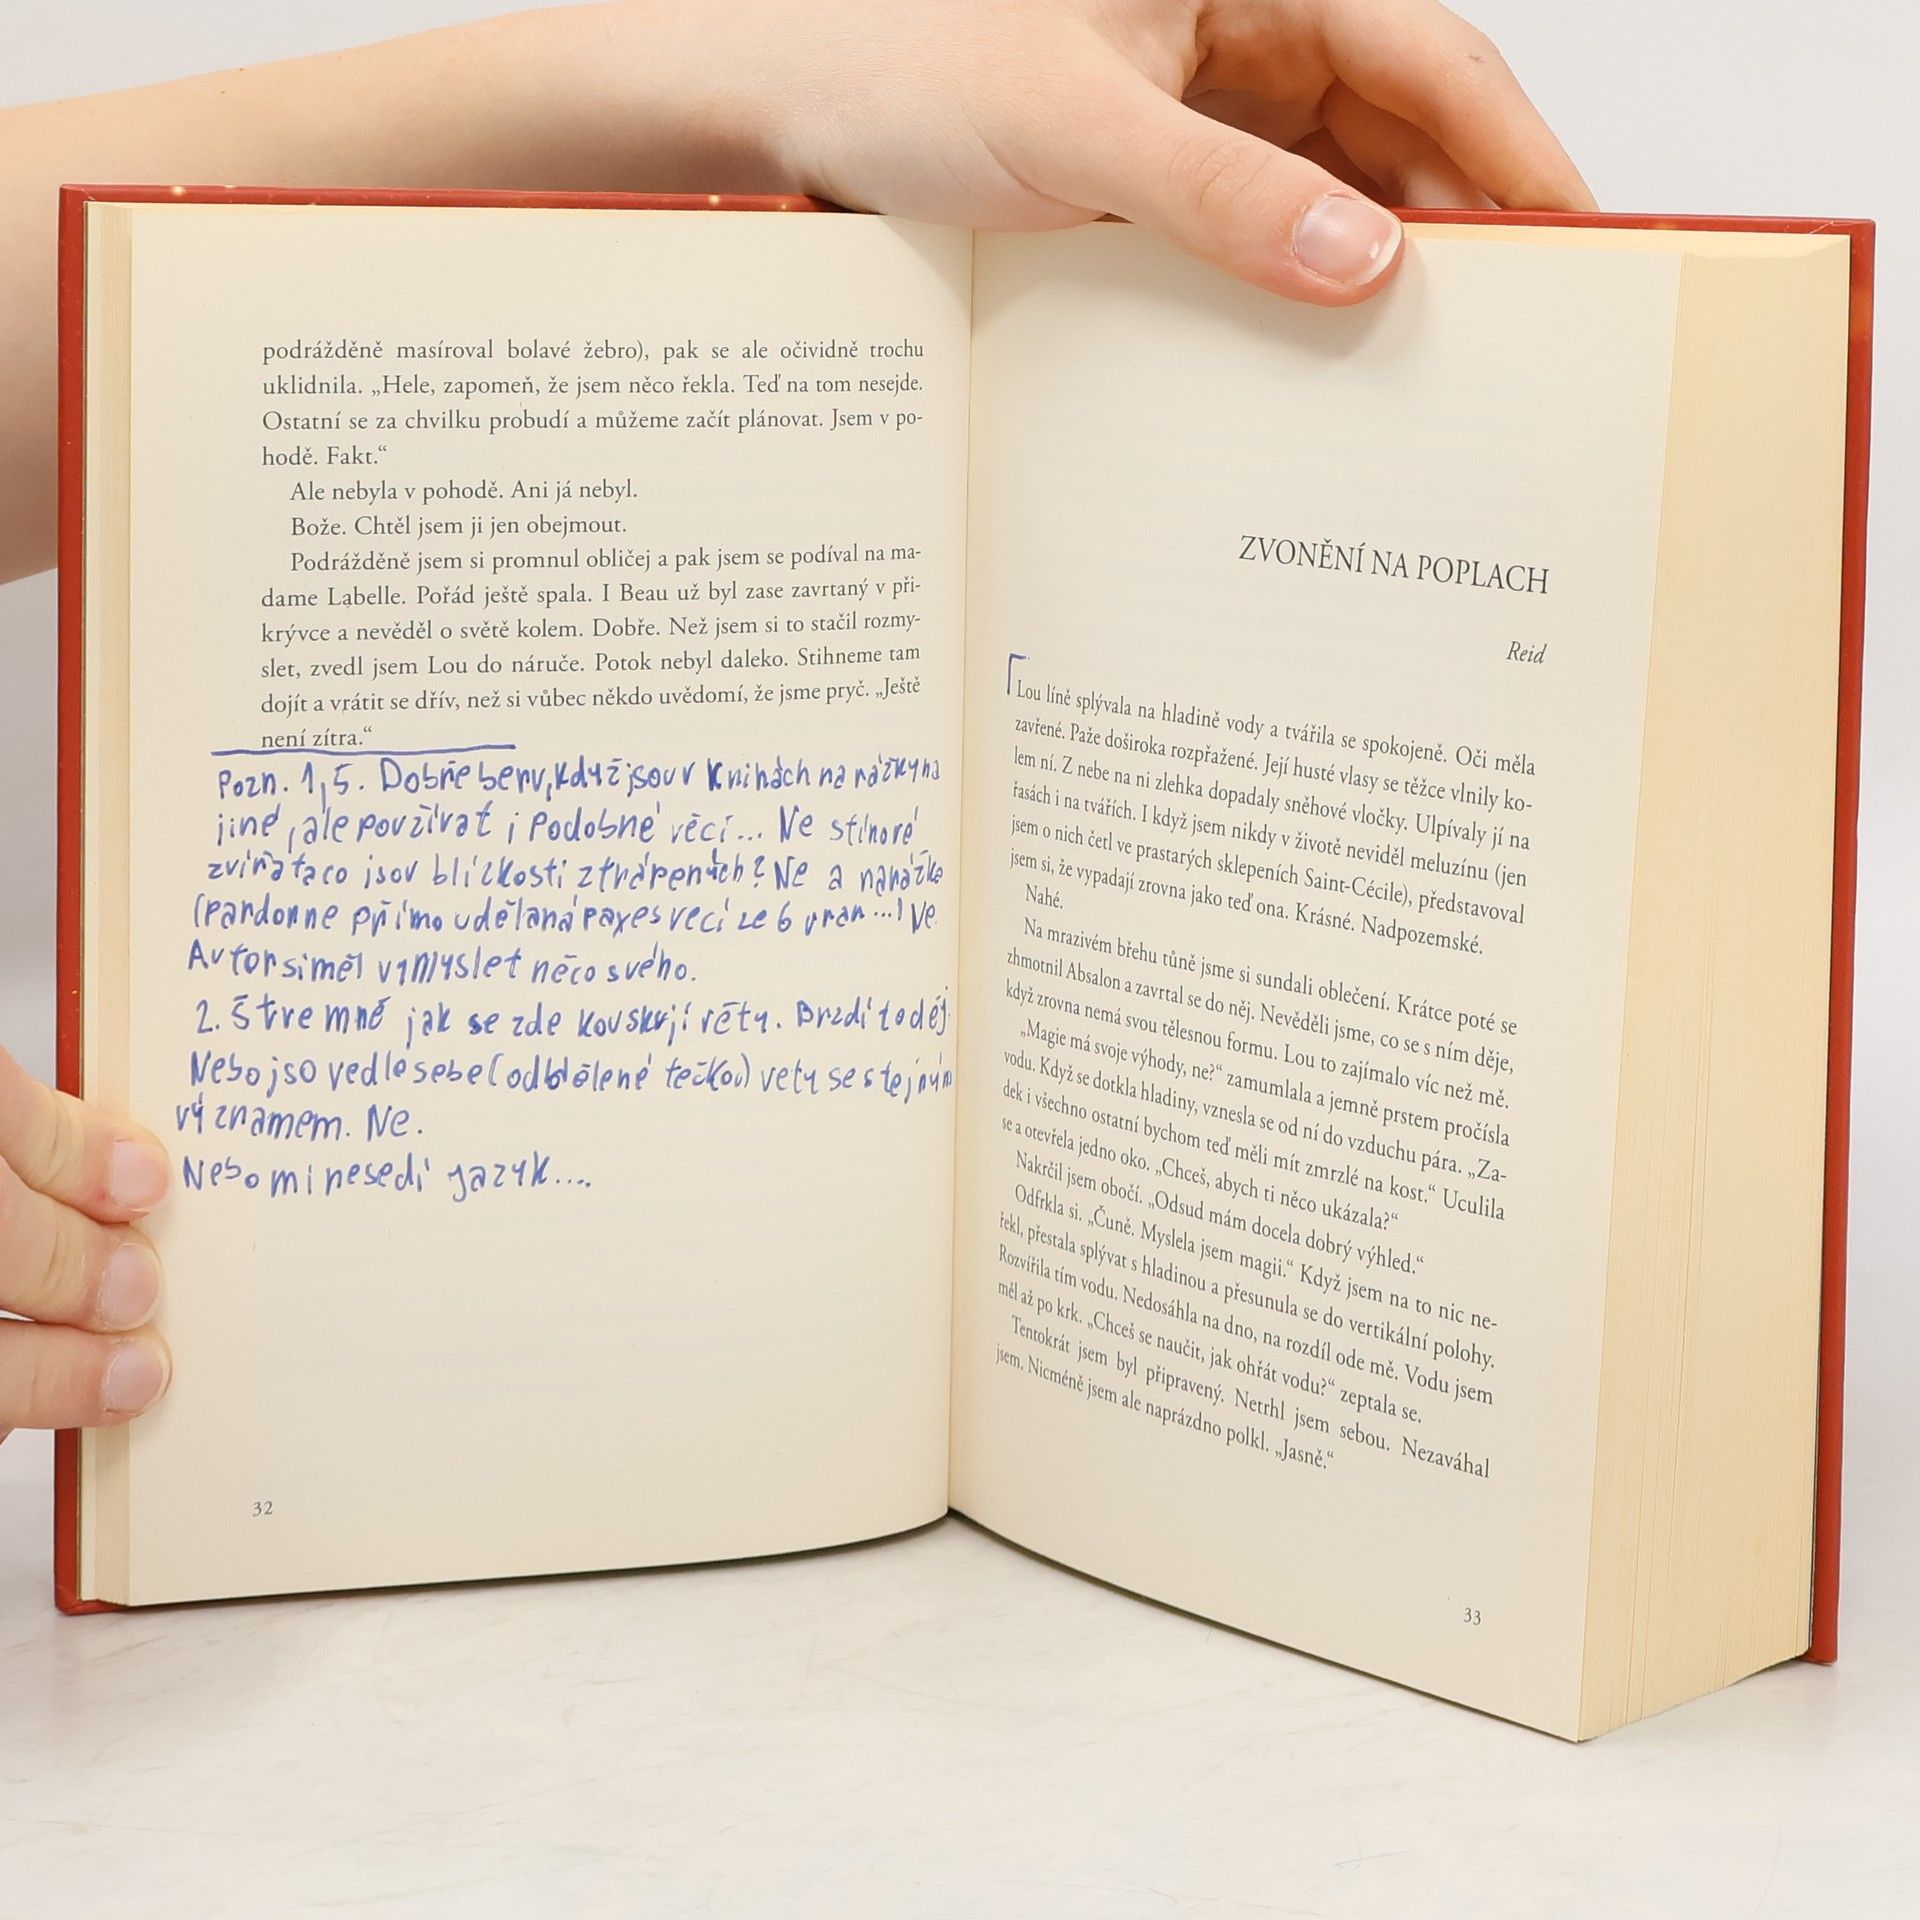 podrážděně masíroval bolavé žebro), pak se ale očividně trochu
uklidnila. „Hele, zapomeň, že jsem něco řekla. Teď na tom nesejde.
Ostatní se za chvilku probudí a můžeme začít plánovat. Jsem v po-
hodě. Fakt.“
Ale nebyla v pohodě. Ani já nebyl.
Bože. Chtěl jsem ji jen obejmout.
Podrážděně jsem si promnul obličej a pak jsem se podíval na ma-
dame Labelle. Pořád ještě spala. I Beau už byl zase zavrtaný v při-
krývce a nevěděl o světě kolem. Dobře. Než jsem si to stačil rozmy-
slet, zvedl jsem Lou do náruče. Potok nebyl daleko. Stihneme tam
dojít a vrátit se dřív, než si vůbec někdo uvědomí, že jsme pryč. „Ještě
není zítra.“
Pozn. 1,5. Dobře beru, když jsou v knihách narážky na
jiné, ale používat i podobné věci... Ne stínové
zvířata co jsou blízkosti ztrápených? Ne a narážka
(pardonne přímo udělaná paxes veci ze 6 vran...) Ne.
Autor si měl vymyslet něco svého.
2. Štve mně jak se zde kouskují věty. Brzdí to děj.
Nebo jso vedle sebe (oddělené tečkou) vety se stejným
významem. Ne.
Nebo mi nesedí jazyk....
32
ZVONĚNÍ NA POPLACH
Reid
Lou líně splývala na hladině vody a tvářila se spokojeně. Oči měla
zavřené. Paže doširoka rozpřažené. Její husté vlasy se těžce vlnily ko-
lem ní. Z nebe na ni zlehka dopadaly sněhové vločky. Ulpívaly jí na
řasách i na tvářích. I když jsem nikdy v životě neviděl meluzínu (jen
jsem o nich četl ve prastarých sklepeních Saint-Cécile), představoval
jsem si, že vypadají zrovna jako teď ona. Krásné. Nadpozemské.
Nahé.
Na mrazivém břehu tůně jsme si sundali oblečení. Krátce poté se
zhmotnil Absalon a zavrtal se do něj. Nevěděli jsme, co se s ním děje,
když zrovna nemá svou tělesnou formu. Lou to zajímalo víc než mě.
„Magie má svoje výhody, ne?“ zamumlala a jemně prstem pročísla
vodu. Když se dotkla hladiny, vznesla se od ní do vzduchu pára. „Za-
dek i všechno ostatní bychom teď měli mít zmrzlé na kost.“ Uculila
se a otevřela jedno oko. „Chceš, abych ti něco ukázala?“
Nakrčil jsem obočí. „Odsud mám docela dobrý výhled.“
Odfrkla si. „Čuně. Myslela jsem magii.“ Když jsem na to nic ne-
řekl, přestala splývat s hladinou a přesunula se do vertikální polohy.
Rozvířila tím vodu. Nedosáhla na dno, na rozdíl ode mě. Vodu jsem
měl až po krk. „Chceš se naučit, jak ohřát vodu?“ zeptala se.
Tentokrát jsem byl připravený. Netrhl jsem sebou. Nezaváhal
jsem. Nicméně jsem ale naprázdno polkl. „Jasně.“
33